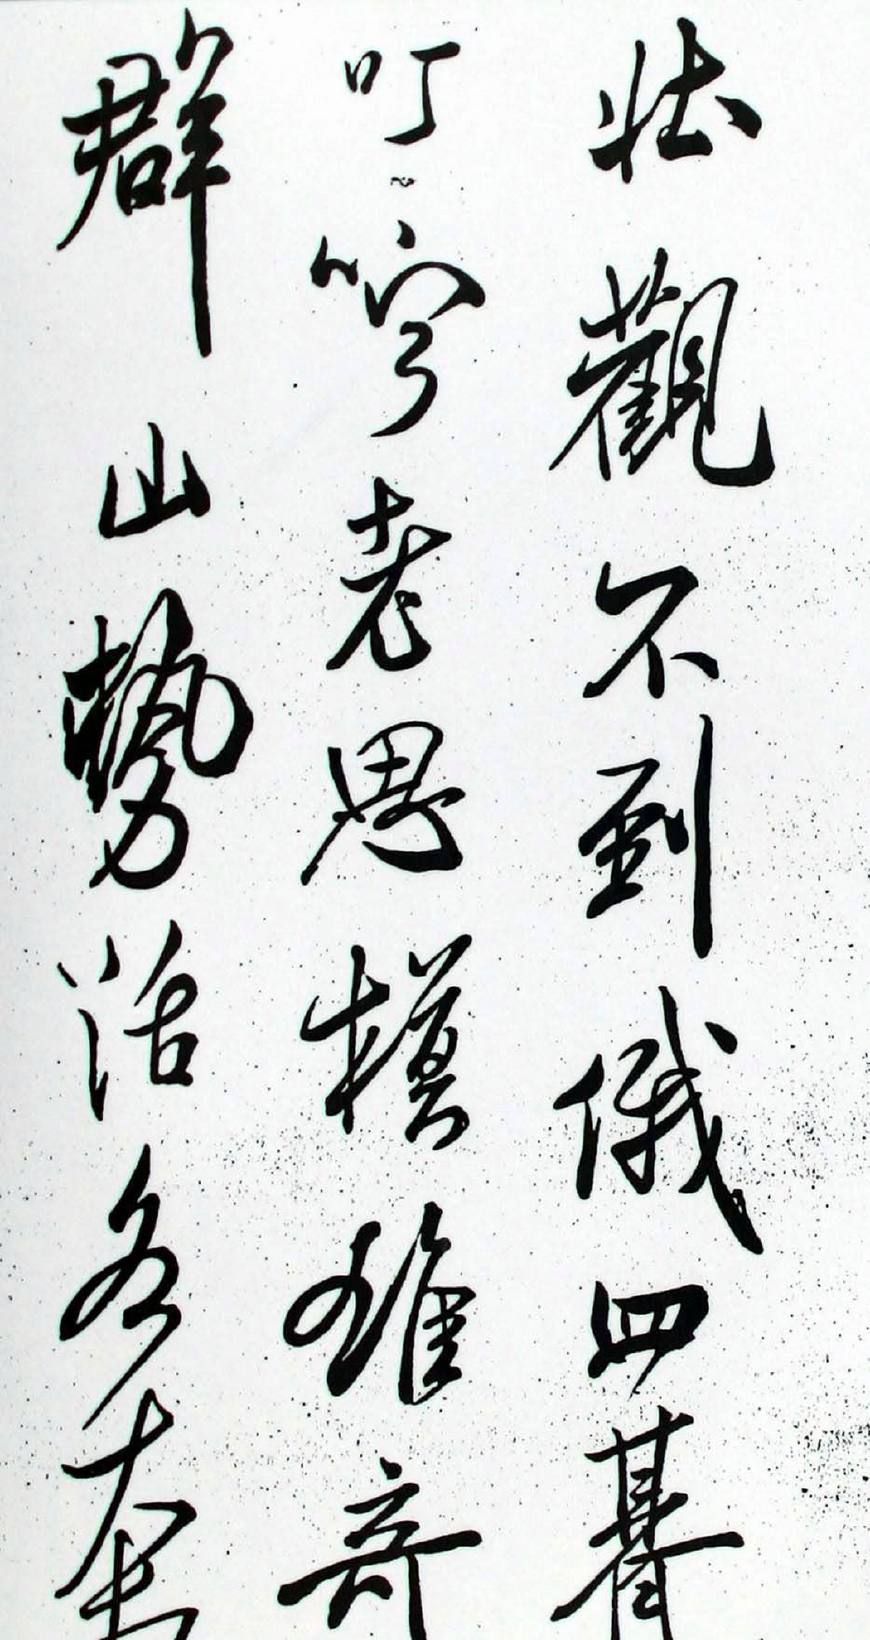 壯觀不到俄四暮
叮嚀老思模雄奇
群山勢活多奔